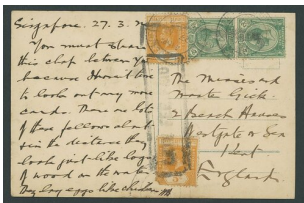 Singapore. 27. 3.
You must share
this clap between you
because I haven't time
to look out any more
cards. There are lots
of these fellows about
in the distance they
look just like logs
of wood on the water.
They lay eggs like chickens
The Misses and
Master Gick.
2 Beach Houses
Westgate on Sea
Kent
England